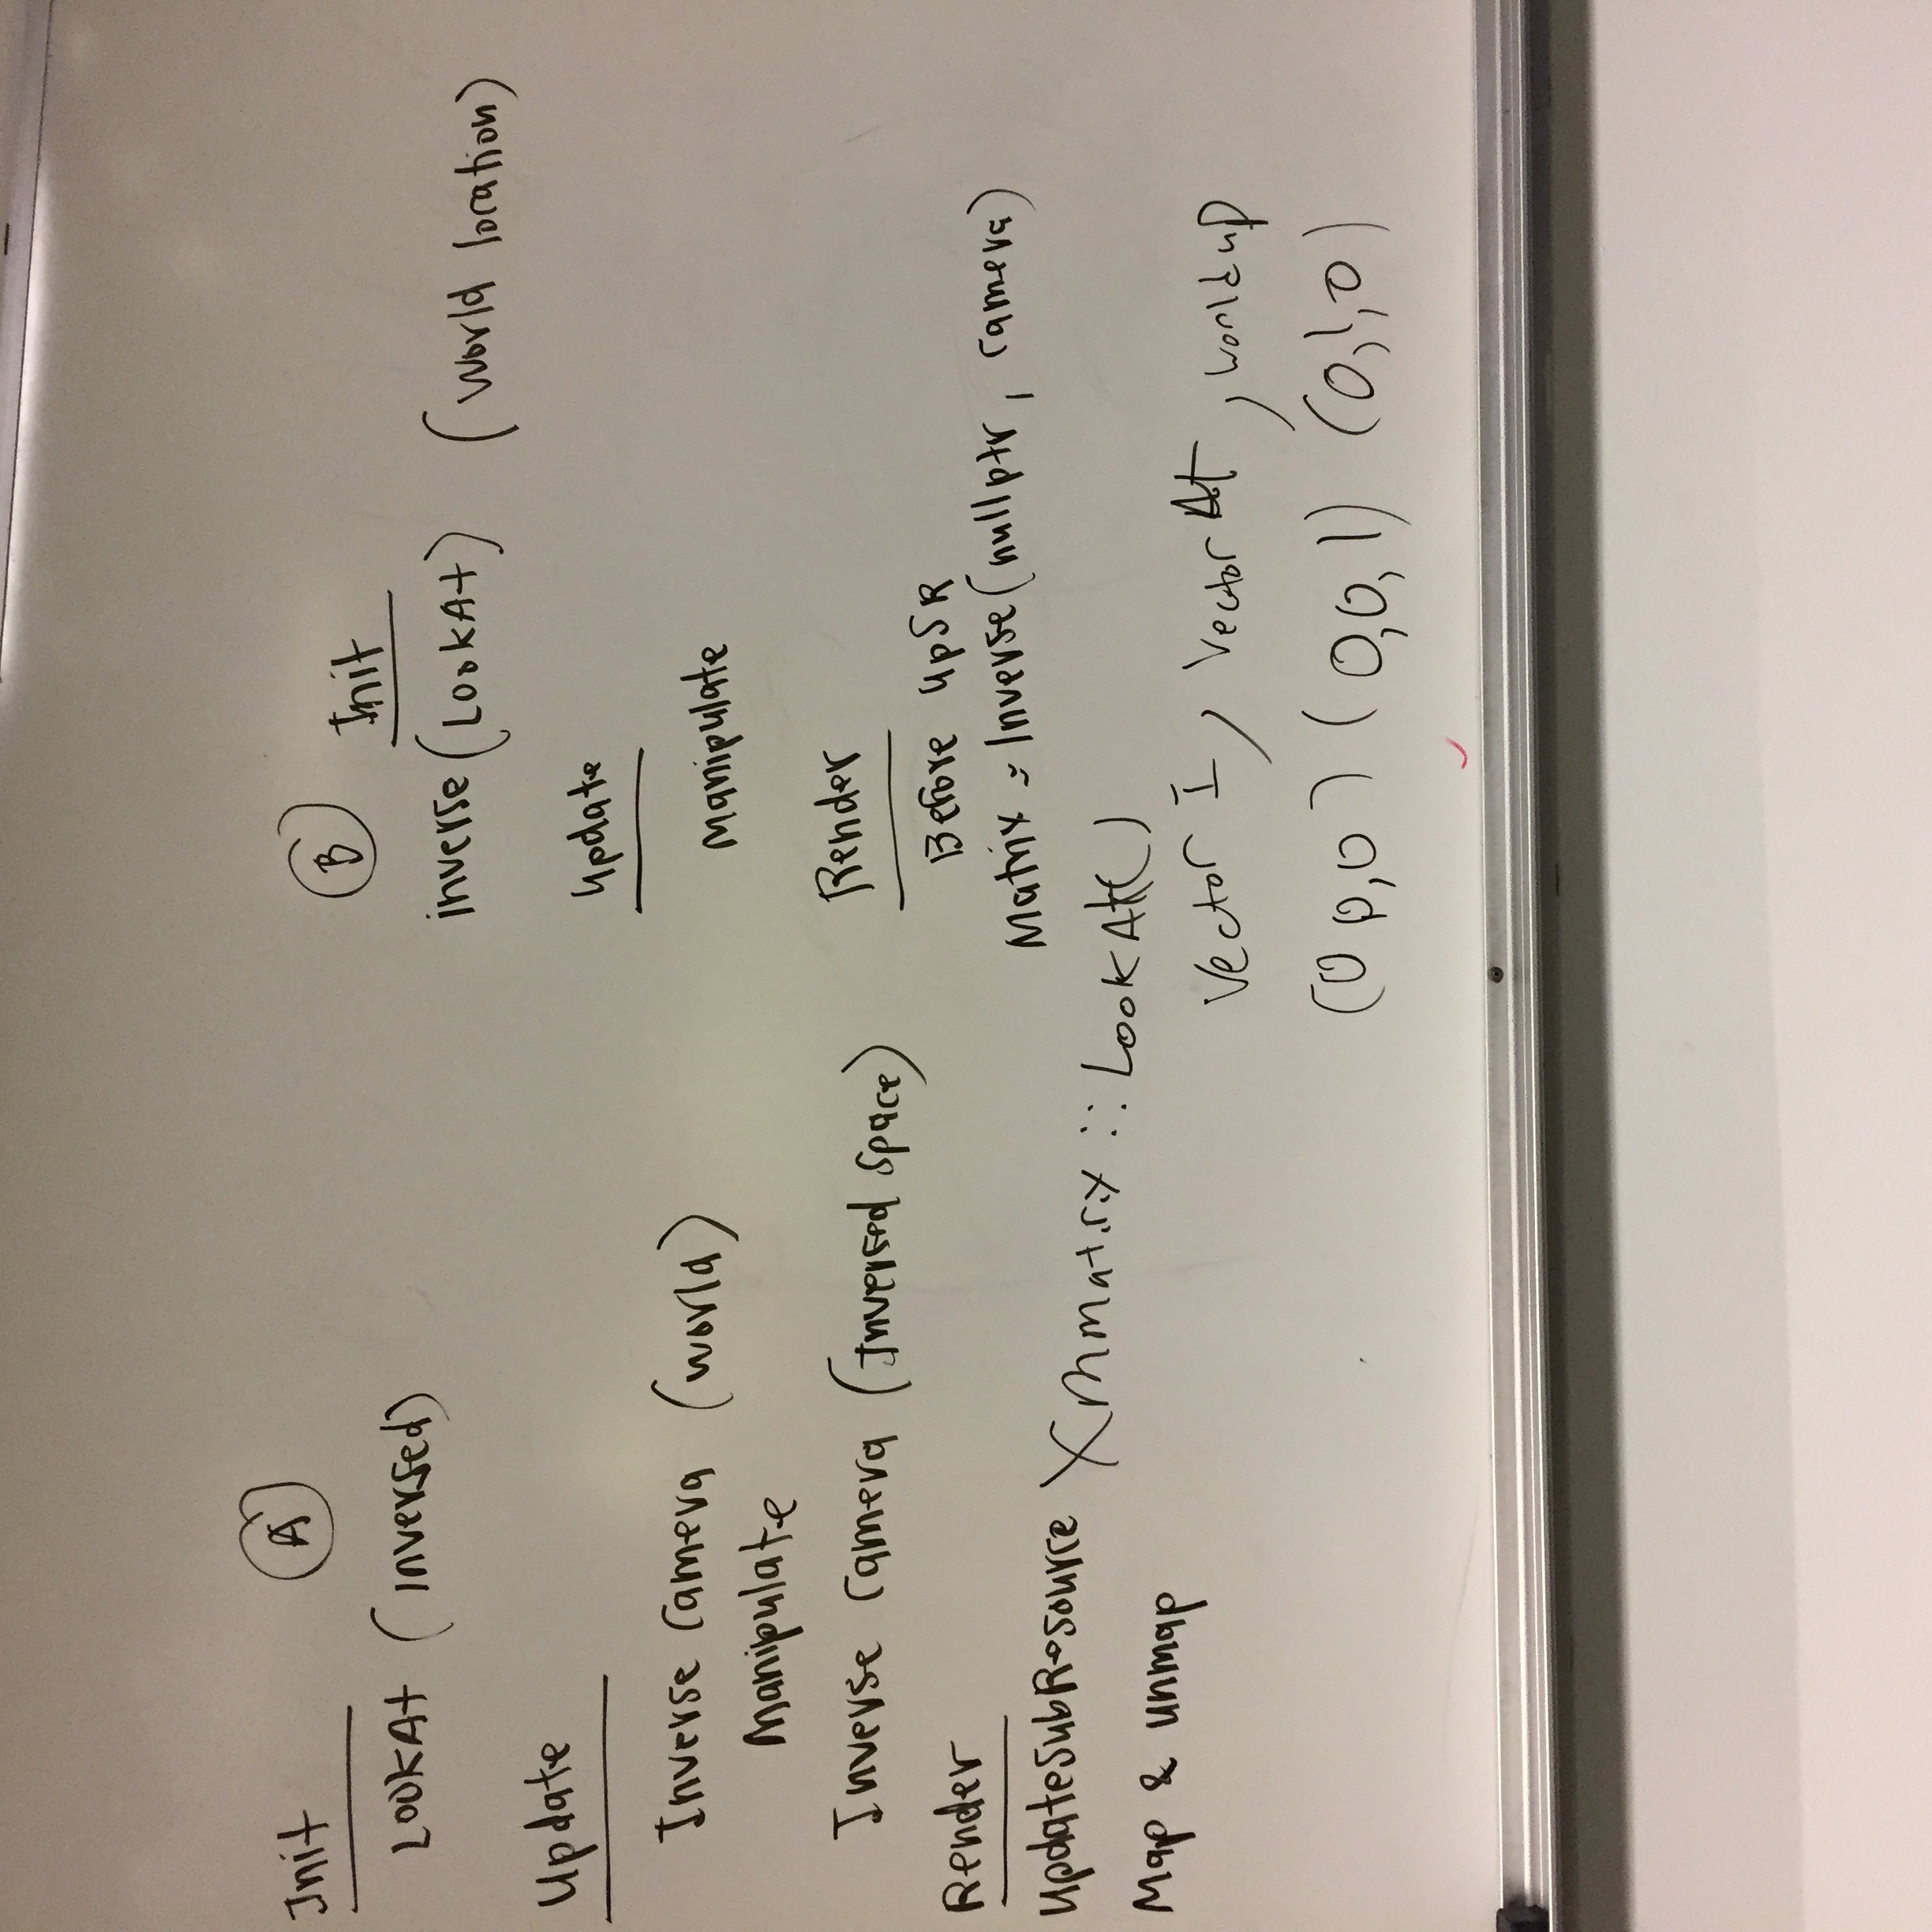 A
Init
LookAt (inversed)
Update
Inverse Camera (world)
Manipulate
Inverse Camera (Inversed Space)
Render
UpdateSubResource
Map & unmap
B
Init
inverse (LookAt) (World location)
Update
Manipulate
Render
Before UpSR
Matrix = Inverse (nullptr, camera)
Xmmatrix :: LookAt()
Vector I, Vector At, world up
(0 0,0) (0,0,1) (0,1,0)